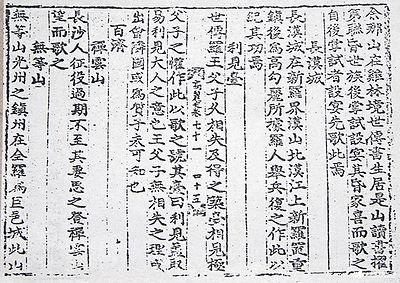 余那山在雞林境世傳書生居是山讀書擢
第聯昏世族後掌試設宴其昏家喜而歌之
自後掌試者設宴先歌此焉
長漢城
長漢城在新羅界漢山北漢江上新羅置重
鎭後爲高勾麗所據羅人舉兵復之作此以
紀其功焉
利見臺
世傳羅王父子久相失及得之築臺相見極
史卷七十一 四十三
父子之懽作此以歌之號其臺曰利見盖取
易利見大人之意也王父子無相失之理或
出會隣國或爲質子未可知也
百濟
禪雲山
長沙人征役過期不至其妻思之登禪雲山
望而歌之
無等山
無等山光州之鎭州在全羅爲巨邑城此山